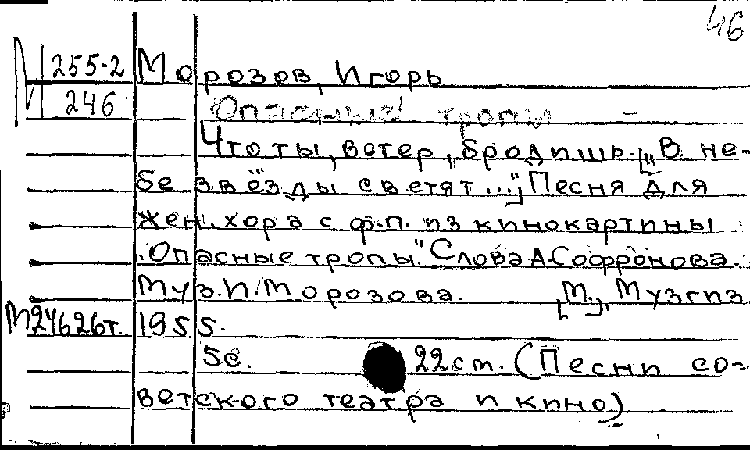 46
М 255-2 Морозов, Игорь
246 Опасные тропы
Что ты, ветер, бродишь. ["В не-
бе звёзды светят..."] Песня для
жен. хора с ф.-п. из кинокартины
"Опасные тропы" Слова А.Софронова.
Муз. И. Морозова. [М.], Музгиз
М24626т. 1955.
5с. 22 см. (Песни со-
ветского театра и кино)